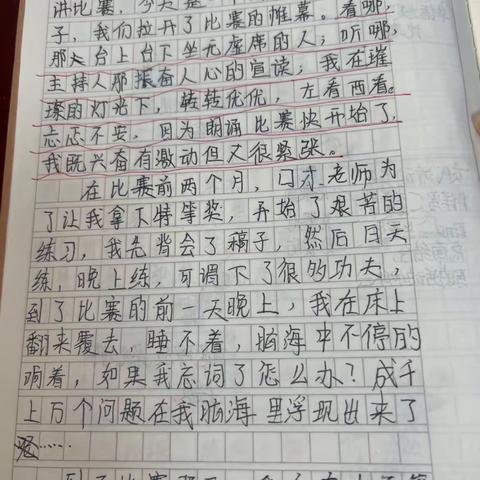 讲比赛,今天是一个
子,我们拉开了比赛的帷幕。看哪,
那台上台下坐无虚席的人;听哪,
主持人那振奋人心的宣读;我在璀
璨的灯光下,转转优优,左看西看。
忐忑不安,因为朗诵比赛快开始了,
我既兴奋有激动但又很紧张。
在比赛前两个月,口才老师为
了让我拿下特等奖,开始了艰苦的
练习,我先背会了稿子,然后日天
练,晚上练,可谓下了很多功夫,
到了比赛的前一天晚上,我在床上
翻来覆去,睡不着,脑海中不停的
响着,如果我忘词了怎么办?成千
上万个问题在我脑海里浮现出来了
……
到了比赛